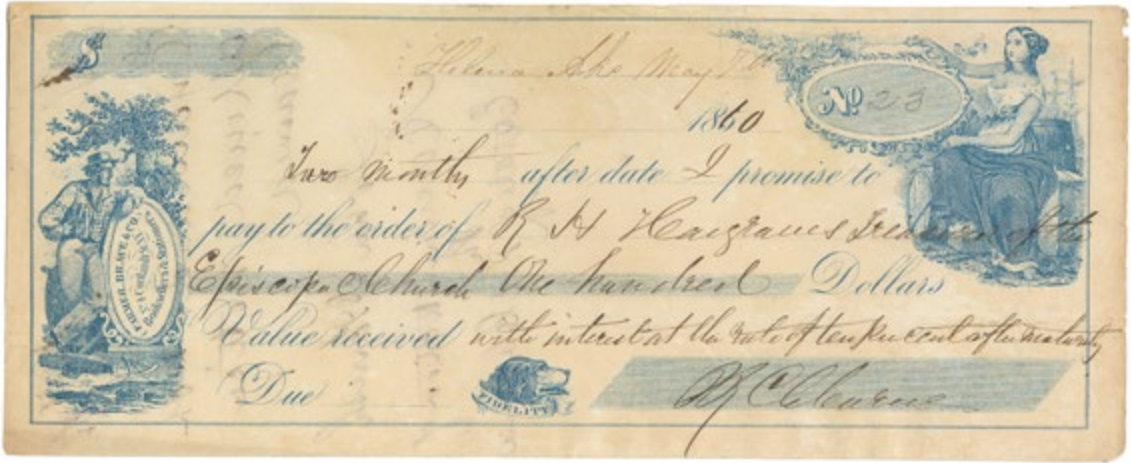 $
Helena Arks May 7th
No 23
1860
Two months after date I promise to
pay to the order of R H Hargraves Treasurer of the
Episcopal Church One hundred Dollars
Value received with interest at the rate of ten per cent after maturity
Due
FIDELITY
P R Cleburne